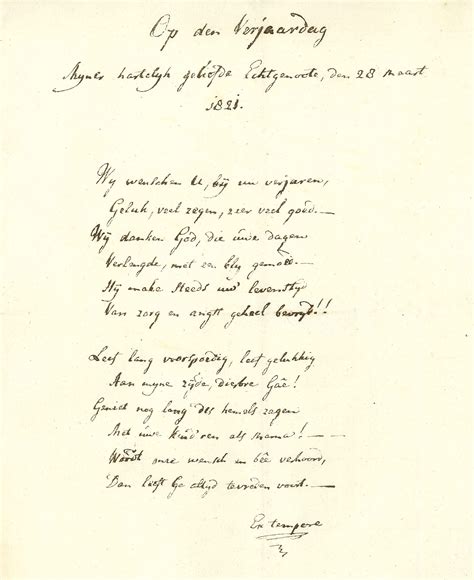 Op den Verjaardag
Mijner hartelijk geliefde Echtgenoote, den 28 Maart
1821.
Wij wenschen U, bij uw verjaren,
Geluk, veel zegen, zeer veel goed. —
Wij danken God, die uwe dagen
Verlengde, met een blij gemoed. —
Hij make steeds uw levenstijd
Van zorg en angst geheel bevrijd!!
Leef lang voorspoedig, leef gelukkig
Aan mijne zijde, dierbre Gâe!
Geniet nog lang des hemels zegen
Met uwe kind'ren als mama! —
Wordt onze wensch en bêe verhoord,
Dan leeft Ge altijd tevreden voort. —
Ex tempore